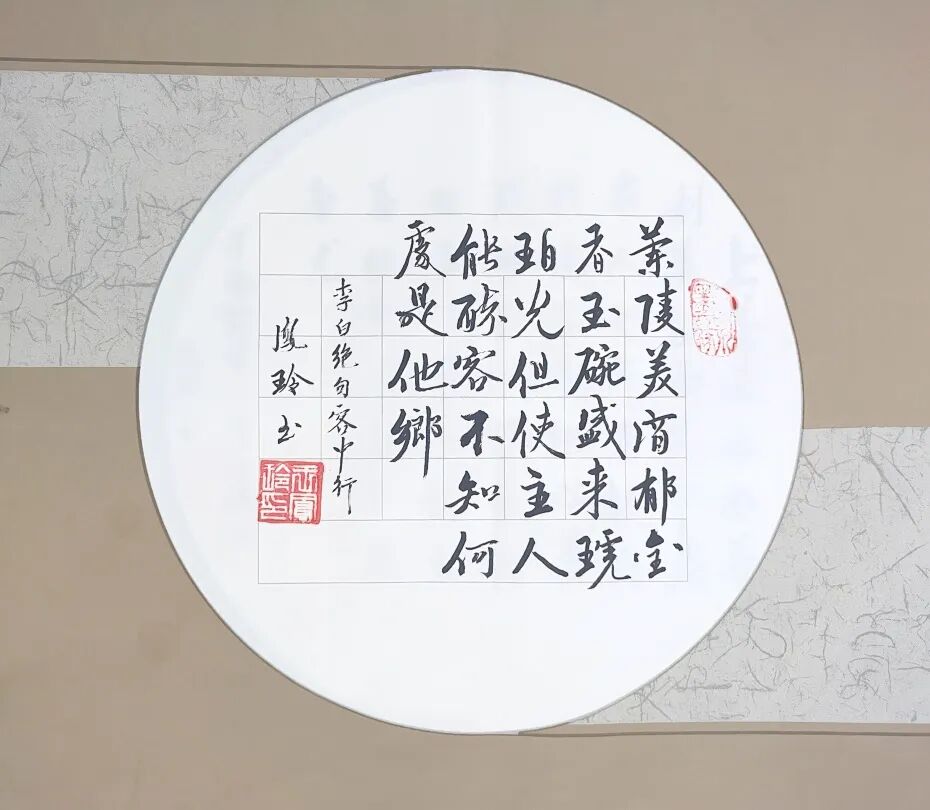 蘭陵美酒郁金
香玉碗盛来琥
珀光但使主人
能醉客不知何
處是他鄉
李白绝句客中行
鳳玲书